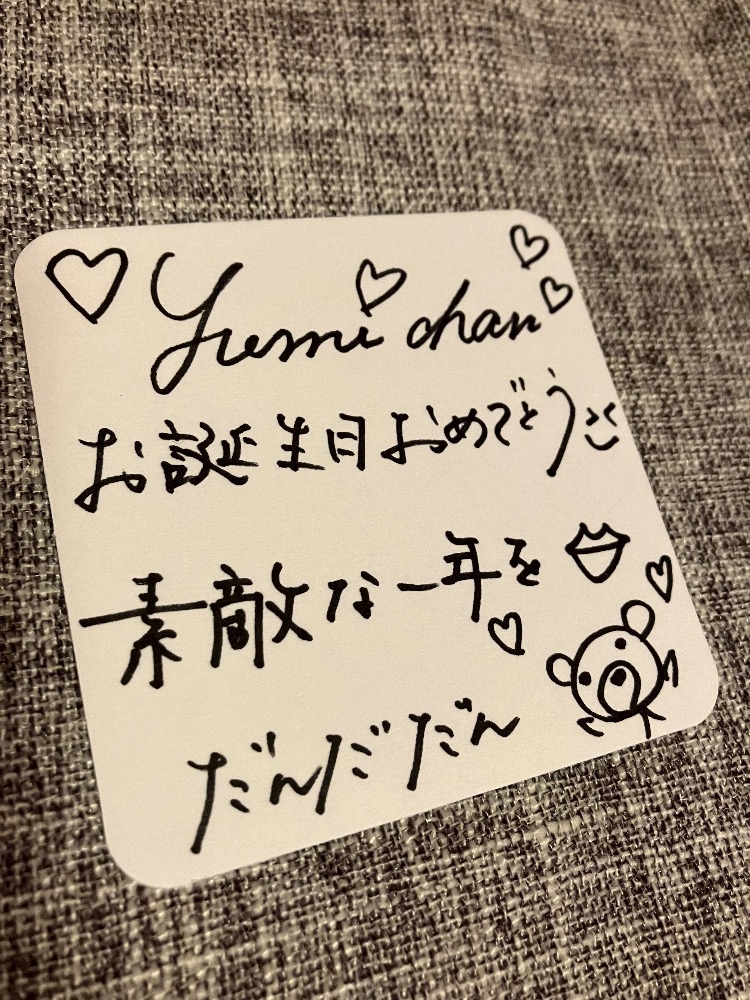 Yumi chan
お誕生日おめでとう
素敵な一年を
だんだだん